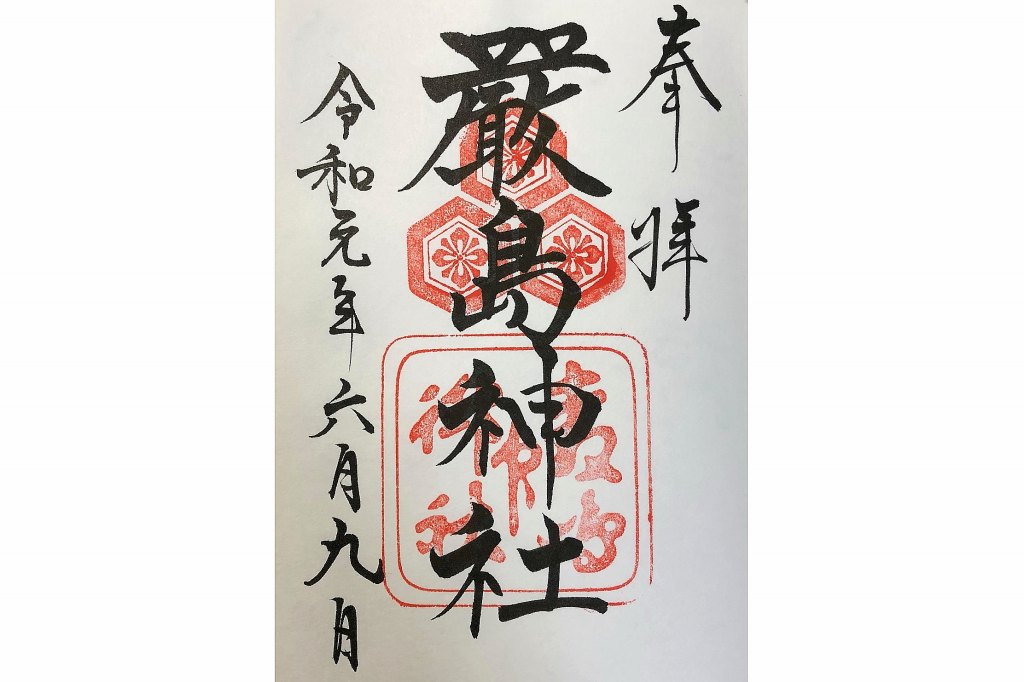 奉拝
厳島神社
令和元年六月九日